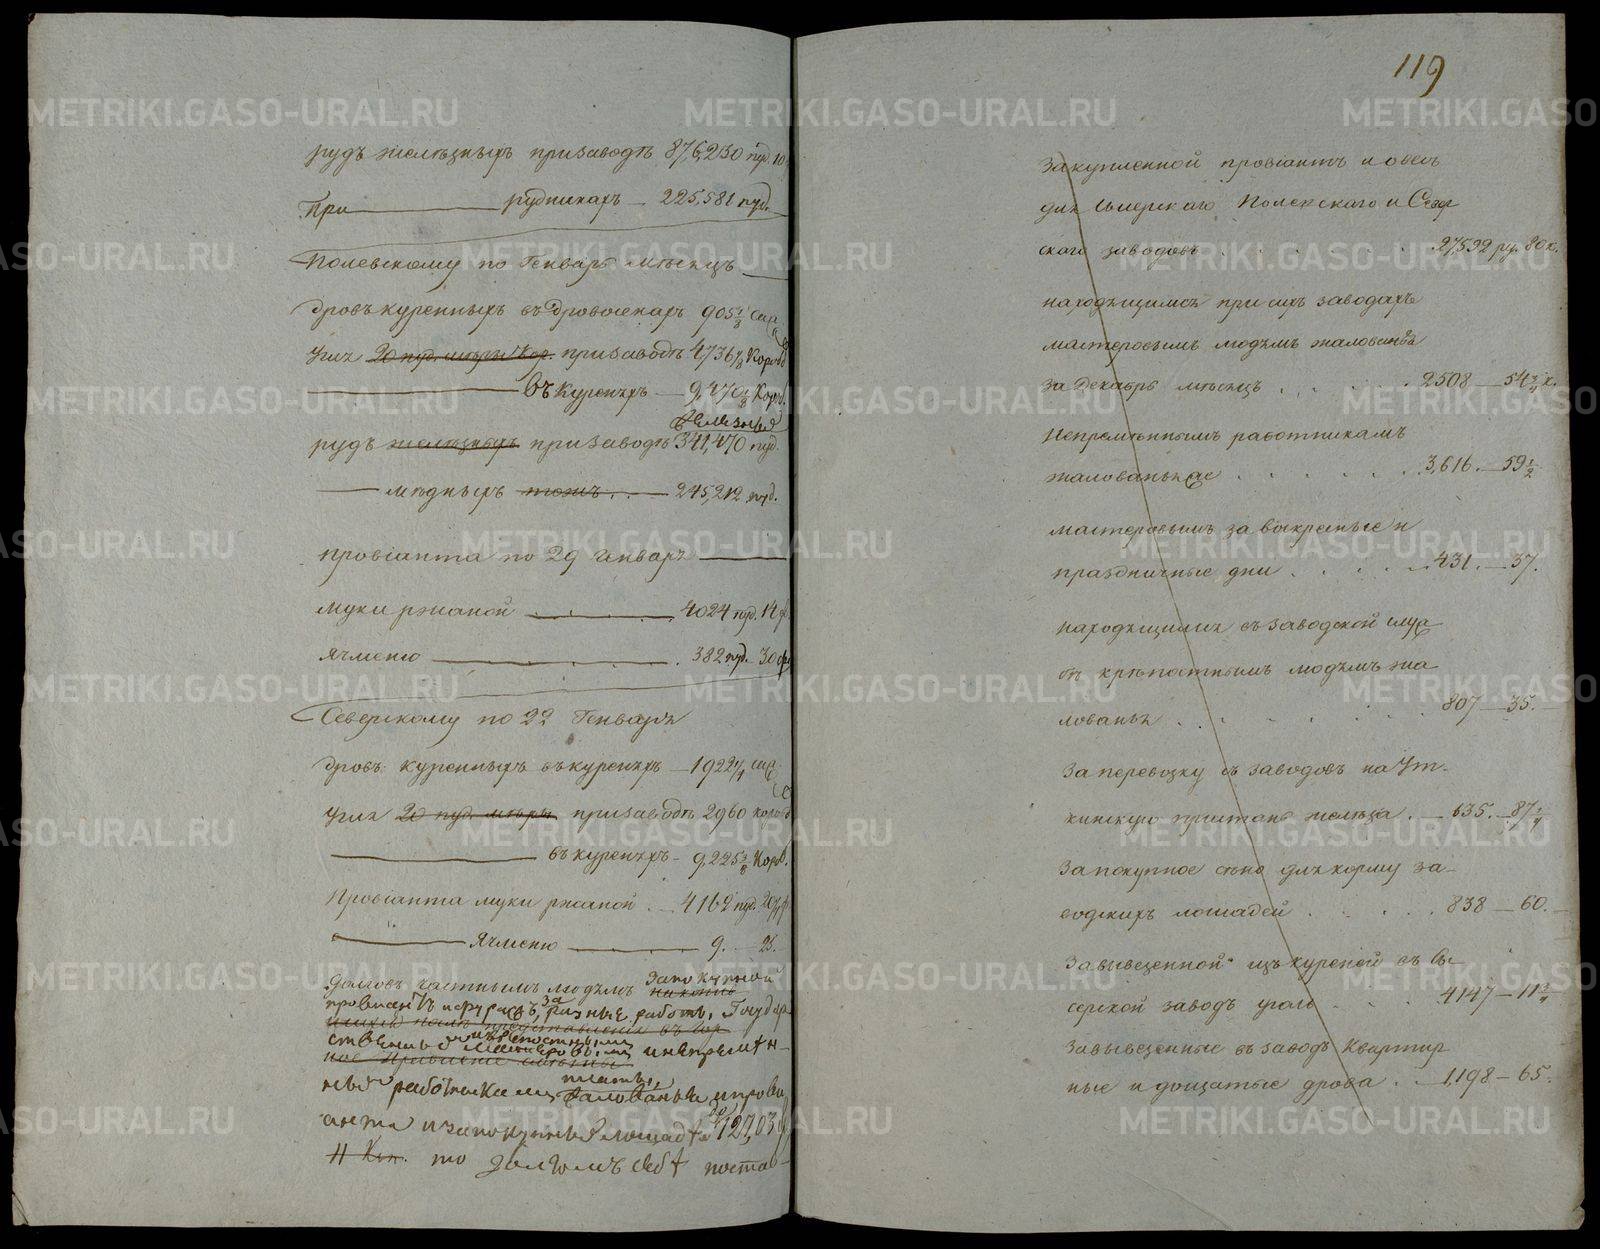 рудъ желѣзныхъ при заводѣ 876,230 пуд. 10
При ——— рудникахъ — 225,581 пуд.
Полевскому по Генварь мѣсяцъ —
Дровъ куренныхъ въ дровосѣкахъ 905⅛ саж
Угля 20 пуд. мѣры кор. при заводѣ 4,736⅞ Коробъ
——— въ куреняхъ — 9,470⅛ Короб.
желѣзныя
рудъ желѣзныхъ при заводѣ 341,470 пуд.
—— мѣдныхъ тожъ . . — 245,212 пуд.
провіанта по 29 генваря ——
муки ржаной — . . . — 4024 пуд. 14 ф
Ячменю ——— . 382 пуд. 30 фу
Северскому по 22 Генваря
Дровъ куренныхъ въ куреняхъ — 1922¼ саж
Угля 20 пуд. мѣры при заводѣ 2960 короб
——— въ куреняхъ — 9,225⅜ Короб.
Провіанта муки ржаной . — 4162 пуд. 20
——— Ячменю ——— 9. — 25.
Долговъ частнымъ людямъ за покупной
провиантъ и фуражъ, за разные работы, Государ
ственные и крепостнымъ
мастеровымъ и непремѣн
ныя работникамъ платы,
жалованья и прови
анта и за покупныя лошадѣ до 127,03
11 Коп. то долгомъ себѣ постав-
119
Закупленной провіантъ и овесъ
для Сысерскаго Полевскаго и Север
скаго заводовъ . . . . . 27,592 ру. 80 к.
находящимся при сихъ заводахъ
мастеровымъ людямъ жалованья
за Декабрь мѣсяцъ . . . . . 2508 — 54¾ к.
Непремѣннымъ работникамъ
жалованья же . . . . . . 3,616. — 59½
мастеровымъ за воскресные и
праздничные дни . . . . . 431. — 37.
находящимся въ заводской служ
бѣ крѣпостнымъ людямъ жа
лованья . . . . . . 807 — 35.
За перевозку съ заводовъ на Ут-
кинскую пристань желѣза . — 635. — 87¼
За покупное сѣно для корму за-
водскихъ лошадей . . . . . 838 — 60.
За вывезенной изъ куреней въ Сы
серской заводъ уголь . . . . 4147 — 11¾
За вывезенные въ заводъ квартир
ные и дощатые дрова . . 1,198 — 65.
METRIKI.GASO-URAL.RU